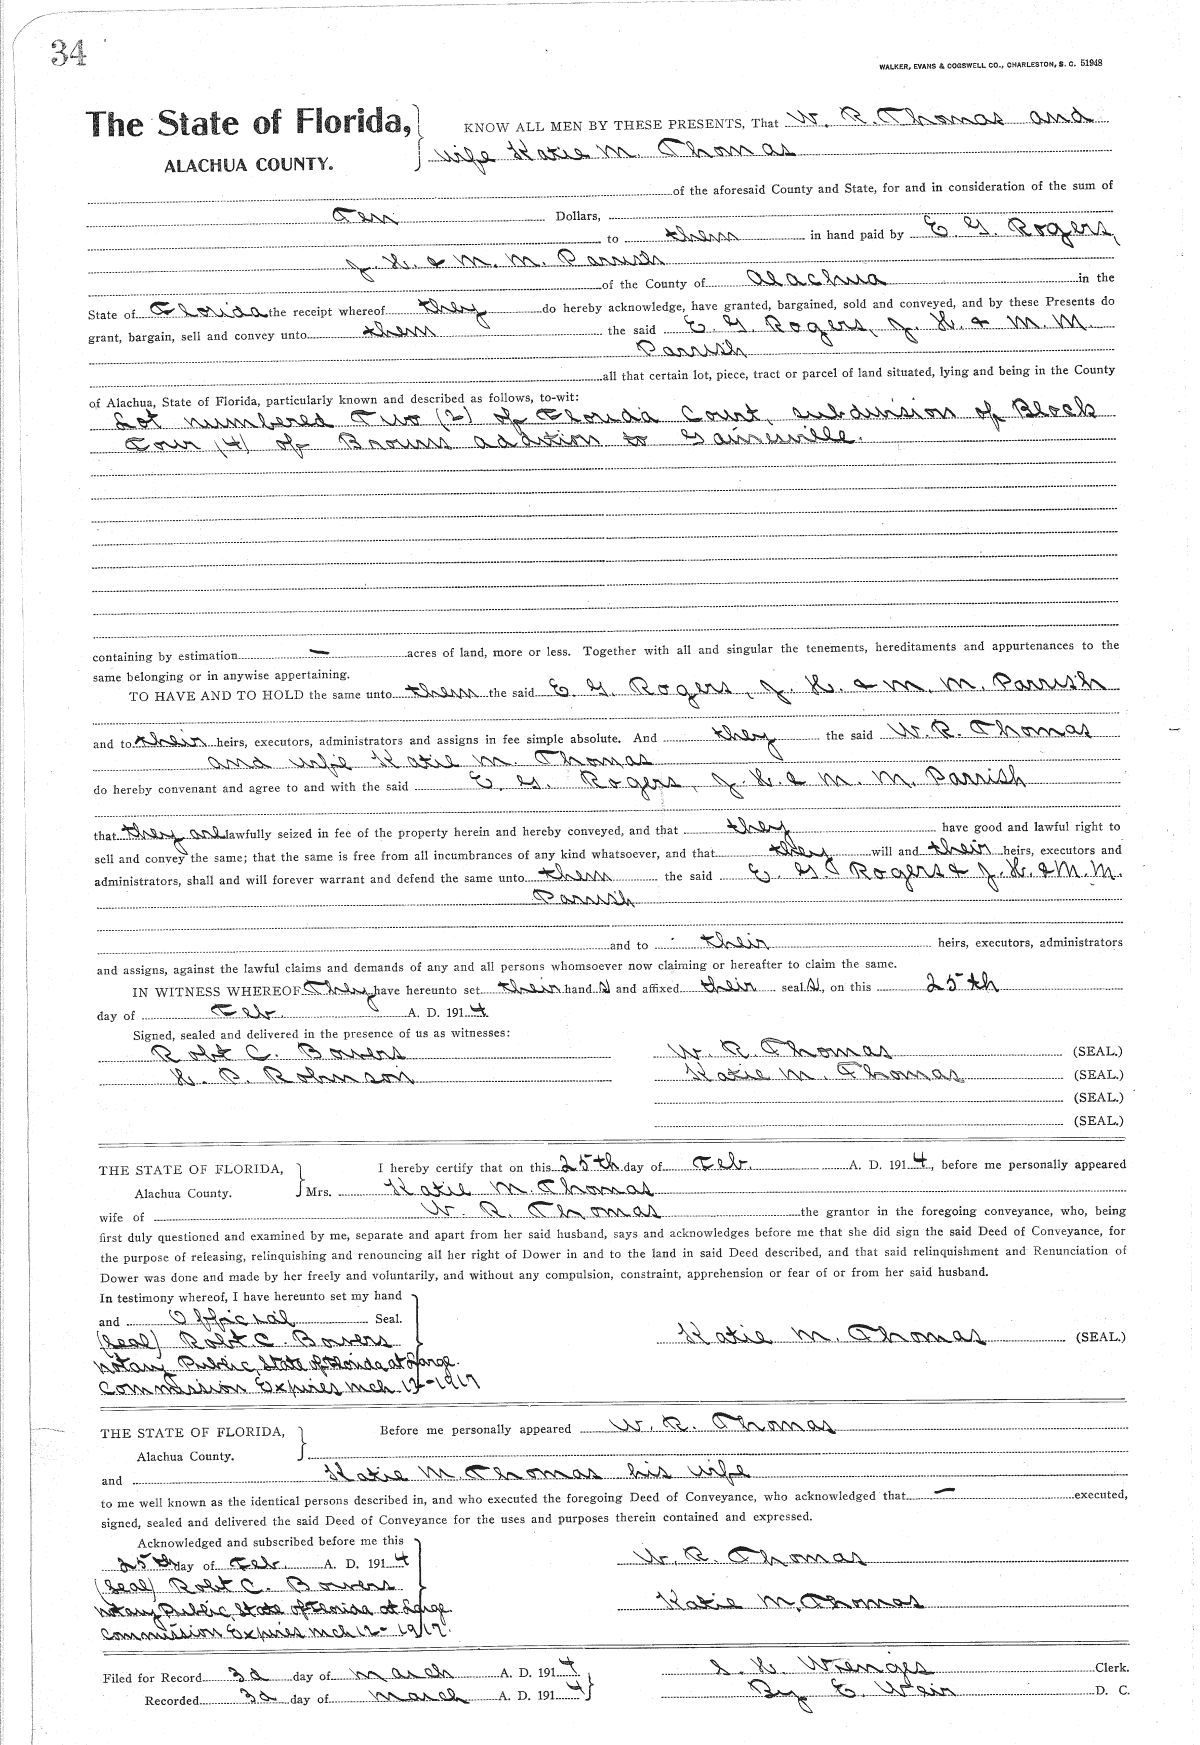 34
WALKER, EVANS & COGSWELL CO., CHARLESTON, S. C. 51948
The State of Florida, KNOW ALL MEN BY THESE PRESENTS, That W. R. Thomas and
ALACHUA COUNTY. wife Katie M. Thomas
of the aforesaid County and State, for and in consideration of the sum of
Ten Dollars,
to them in hand paid by E. G. Rogers,
J. H. & M. M. Parrish
of the County of Alachua in the
State of Florida the receipt whereof they do hereby acknowledge, have granted, bargained, sold and conveyed, and by these Presents do
grant, bargain, sell and convey unto them the said E. G. Rogers, J. H. & M. M.
Parrish
all that certain lot, piece, tract or parcel of land situated, lying and being in the County
of Alachua, State of Florida, particularly known and described as follows, to-wit:
Lot numbered Two (2) of Florida Court, subdivision of Block
Four (4) of Browns addition to Gainesville.
containing by estimation — acres of land, more or less. Together with all and singular the tenements, hereditaments and appurtenances to the
same belonging or in anywise appertaining.
TO HAVE AND TO HOLD the same unto them the said E. G. Rogers, J. H. & M. M. Parrish
and to their heirs, executors, administrators and assigns in fee simple absolute. And they the said W. R. Thomas
and wife Katie M. Thomas
do hereby convenant and agree to and with the said E. G. Rogers, J. H. & M. M. Parrish
that they are lawfully seized in fee of the property herein and hereby conveyed, and that they have good and lawful right to
sell and convey the same; that the same is free from all incumbrances of any kind whatsoever, and that they will and their heirs, executors and
administrators, shall and will forever warrant and defend the same unto them the said E. G. Rogers & J. H. & M. M.
Parrish
and to their heirs, executors, administrators
and assigns, against the lawful claims and demands of any and all persons whomsoever now claiming or hereafter to claim the same.
IN WITNESS WHEREOF They have hereunto set their hand s and affixed their seal s, on this 25th
day of Feb. A. D. 1914
Signed, sealed and delivered in the presence of us as witnesses:
Robt C. Bowers W. R. Thomas (SEAL.)
H. P. Robinson Katie M. Thomas (SEAL.)
(SEAL.)
(SEAL.)
THE STATE OF FLORIDA, I hereby certify that on this 25th day of Feb. A. D. 1914, before me personally appeared
Alachua County. Mrs. Katie M. Thomas
wife of W. R. Thomas the grantor in the foregoing conveyance, who, being
first duly questioned and examined by me, separate and apart from her said husband, says and acknowledges before me that she did sign the said Deed of Conveyance, for
the purpose of releasing, relinquishing and renouncing all her right of Dower in and to the land in said Deed described, and that said relinquishment and Renunciation of
Dower was done and made by her freely and voluntarily, and without any compulsion, constraint, apprehension or fear of or from her said husband.
In testimony whereof, I have hereunto set my hand
and Official Seal.
(Seal) Robt C. Bowers Katie M. Thomas (SEAL.)
Notary Public, State of Florida at Large.
Commission Expires Mch 12-1917
THE STATE OF FLORIDA, Before me personally appeared W. R. Thomas
Alachua County.
and Katie M Thomas his wife
to me well known as the identical persons described in, and who executed the foregoing Deed of Conveyance, who acknowledged that — executed,
signed, sealed and delivered the said Deed of Conveyance for the uses and purposes therein contained and expressed.
Acknowledged and subscribed before me this
25th day of Feb. A. D. 1914 W. R. Thomas
(Seal) Robt C. Bowers
Notary Public, State of Florida at Large Katie M. Thomas
Commission Expires Mch 12-1917.
Filed for Record 3d day of March A. D. 1914 S. H. Wienges Clerk.
Recorded 3d day of March A. D. 1914 By E. Weir D. C.